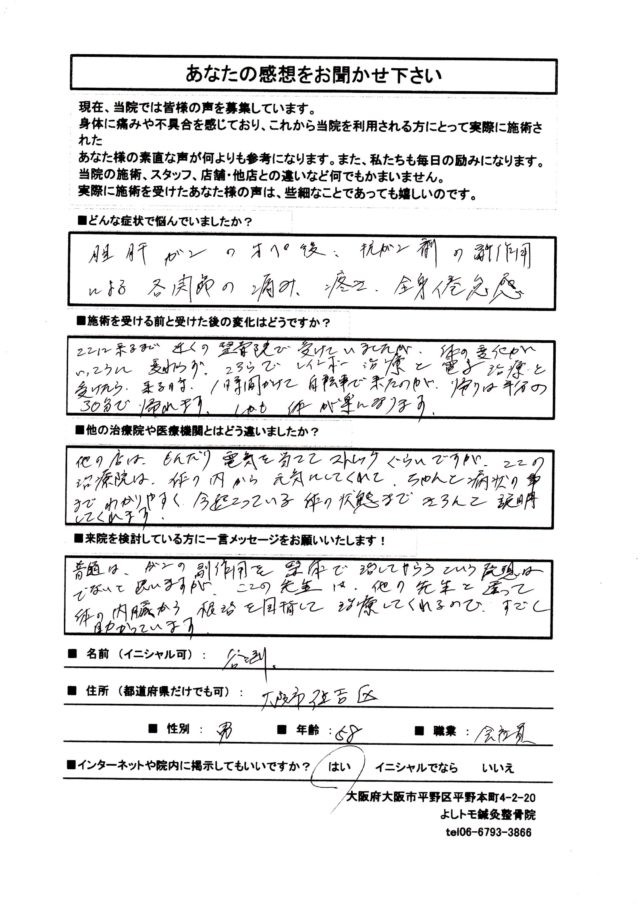 あなたの感想をお聞かせ下さい
現在、当院では皆様の声を募集しています。
身体に痛みや不具合を感じており、これから当院を利用される方にとって実際に施術さ
れた
あなた様の素直な声が何よりも参考になります。また、私たちも毎日の励みになります。
当院の施術、スタッフ、店舗・他店との違いなど何でもかまいません。
実際に施術を受けたあなた様の声は、些細なことであっても嬉しいのです。
■どんな症状で悩んでいましたか？
胆肝ガンのオペ後、抗ガン剤の副作用
による各関節の痛み、疼き、全身倦怠感
■施術を受ける前と受けた後の変化はどうですか？
ここに来るまで近くの整骨院で受けていましたが、体の変化が
いっこうに 変わらず、こちらでレインボー治療と電子治療と
受けたら、来る時、1時間かけて自転車で来たのが、帰りは半分の
30分で帰れます。しかも体が楽になります。
■他の治療院や医療機関とはどう違いましたか？
他の店は、もんだり電気を当ててストレッチぐらいですが、ここの
治療院は、体の内から元気にしてくれて、ちゃんと病状の事
までわかりやすく今起こっている体の状態まできちんと説明
してくれます。
■来院を検討している方に一言メッセージをお願いいたします！
普通は、ガンの副作用を整体で治してやろうという発想は
でないと思いますが、ここの先生は、他の先生と違って
体の内臓から根治を目指して治療してくれるので、すごく
助かっています。
■ 名前（イニシャル可）：
■ 住所（都道府県だけでも可）： 大阪市住吉区
■ 性別： 男 ■ 年齢： 58 ■ 職業： 会社員
■インターネットや院内に掲示してもいいですか？ はい イニシャルでなら いいえ
大阪府大阪市平野区平野本町4-2-20
よしトモ鍼灸整骨院
tel06-6793-3866